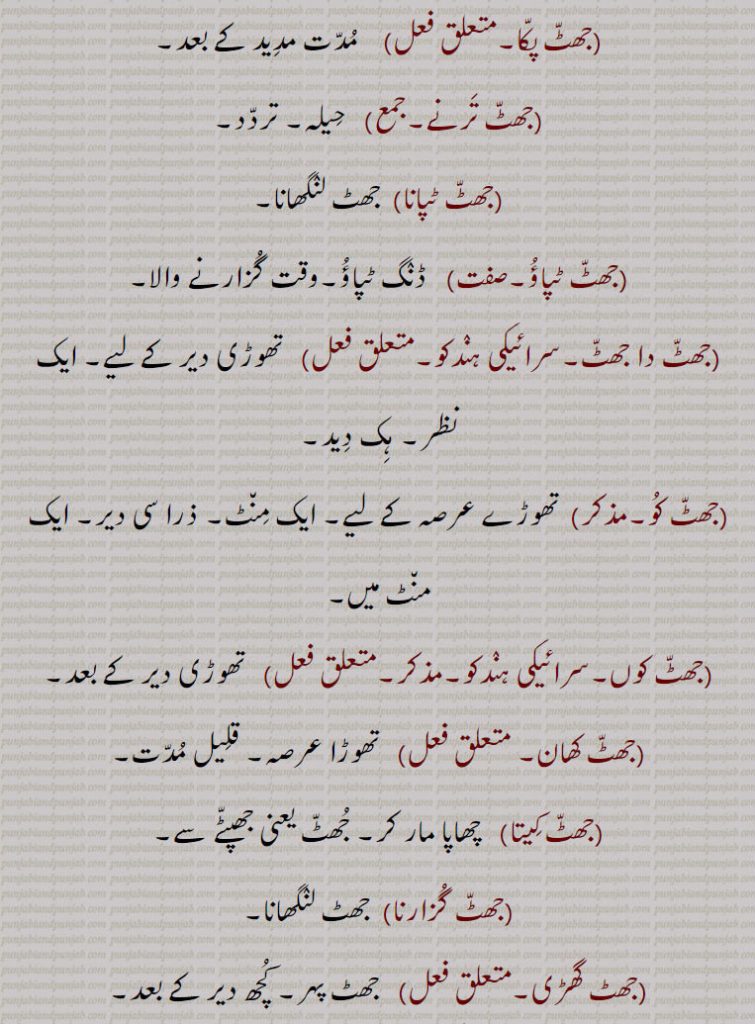 (جھٹّ پکّا۔ متعلق فعل) مُدّت مدِید کے بعد۔
(جھٹّ تَرنے۔ جمع) حِیلہ۔ تردّد۔
(جھٹّ ٹپانا) جھٹ لنگھانا۔
(جھٹّ ٹپاؤُ۔ صفت) ڈنگ ٹپاؤُ۔ وقت گُزارنے والا۔
(جھٹّ دا جھٹّ۔ سرائیکی ہندکو۔ متعلق فعل) تھوڑی دیر کے لیے۔ ایک
نظر۔ ہِک دِید۔
(جھٹّ کوُ۔ مذکر) تھوڑے عرصہ کے لیے۔ ایک مِنّٹ۔ ذرا سی دیر۔ ایک
منّٹ میں۔
(جھٹّ کوں۔ سرائیکی ہندکو۔ مذکر۔ متعلق فعل) تھوڑی دیر کے بعد۔
(جھٹّ کھان۔ متعلق فعل) تھوڑا عرصہ۔ قلِیل مُدّت۔
(جھٹّ کِیتا) چھاپا مار کر۔ جُھٹّ یعنی جھپٹّے سے۔
(جھٹّ گُزارنا) جھٹ لنگھانا۔
(جھٹ گھڑی۔ متعلق فعل) جھٹ پہر۔ کُچھ دیر کے بعد۔